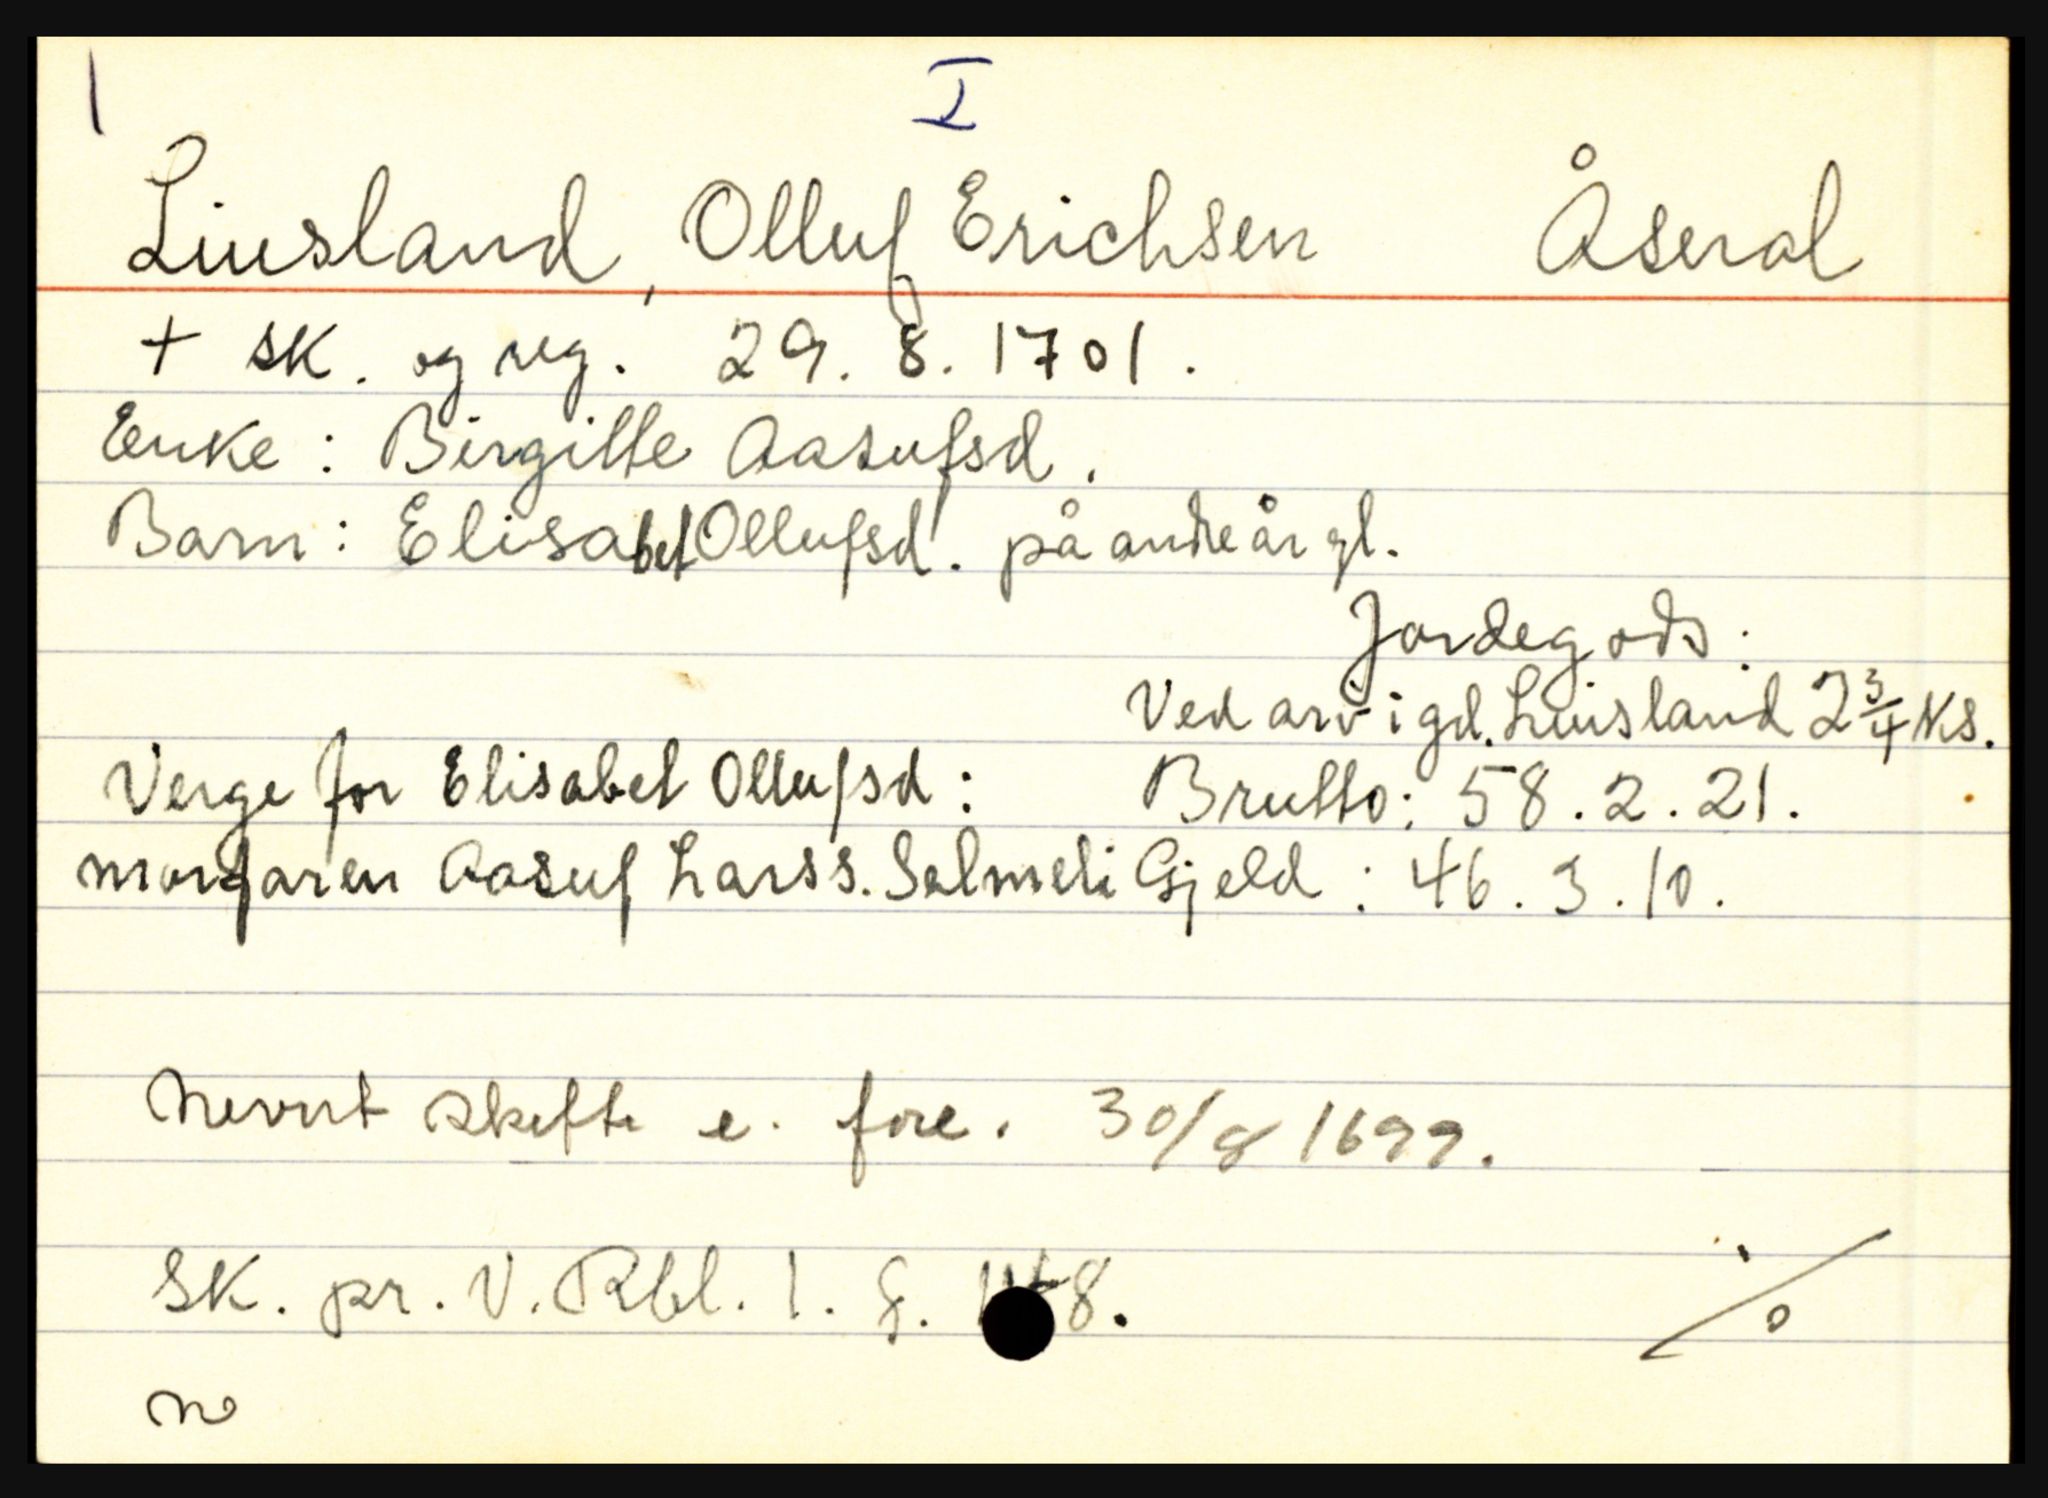 I
Liusland, Olluf Erichsen Åseral
+ sk. og reg. 29. 8. 1701.
Enke: Birgitte Aasufsd.
Barn: Elisabet Ollufsd. på andre år gl.
Jordegods:
Ved arv i gd. Liusland 2 3/4 ks.
Verge for Elisabet Ollufsd: Brutto: 58. 2. 21.
morfaren Aasuf Larss. Selmeli Gjeld: 46. 3. 10.
Nevnt skifte e. fore. 30/8 1699.
Sk. pr. V. Rbl. 1. 8.